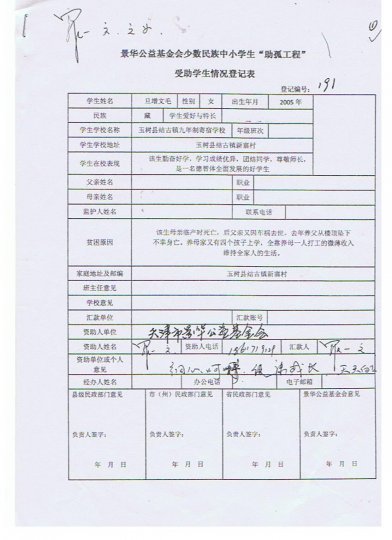 景华公益基金会少数民族中小学生“助孤工程”
受助学生情况登记表
登记编号：191
学生姓名 旦增文毛 性别 女 出生年月 2005年
民族 藏 学生爱好与特长
学生学校名称 玉树县结古镇九年制寄宿学校 年级班次
学生学校地址 玉树县结古镇新寨村
学生在校表现 该生勤奋好学，学习成绩优异，团结同学，尊敬师长，
是一名德智体全面发展的好学生
父亲姓名 职业
母亲姓名 职业
监护人姓名 联系电话
贫困原因 该生母亲临产时死亡，后父亲又因车祸去世，去年养父从楼顶坠下
不幸身亡，养母家又有四个孩子上学，全靠养母一人打工的微薄收入
维持全家人的生活。
家庭地址及邮编 玉树县结古镇新寨村
班主任意见
学校意见
汇款单位 汇款账号
资助人单位 天津市景华公益基金会
资助人姓名 资助人电话 汇款人
资助单位或个人
意见
经办人姓名 办公电话 电子邮箱
县级民政部门意见 市（州）民政部门意见 省民政部门意见 景华公益基金会意见
负责人签字： 负责人签字： 负责人签字： 负责人签字：
年 月 日 年 月 日 年 月 日 年 月 日